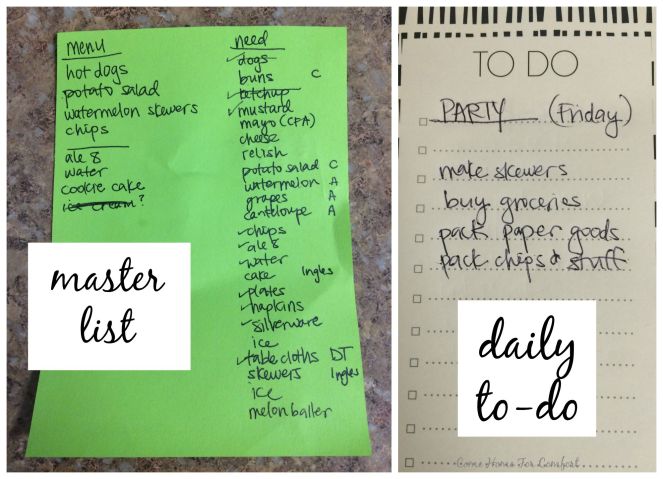 menu
hot dogs
potato salad
watermelon skewers
chips
ale 8
water
cookie cake
ice cream?
need
✓dogs
buns C
✓ketchup
✓mustard
mayo (CFA)
cheese
relish
potato salad C
watermelon A
grapes A
canteloupe A
✓chips
✓ale 8
✓water
cake Ingles
✓plates
✓napkins
✓silverware
ice
✓table cloths DT
skewers Ingles
ice
melon baller
master
list
TO DO
PARTY (Friday)
make skewers
buy groceries
pack paper goods
pack chips & stuff
daily
to-do
Come Home For Comfort